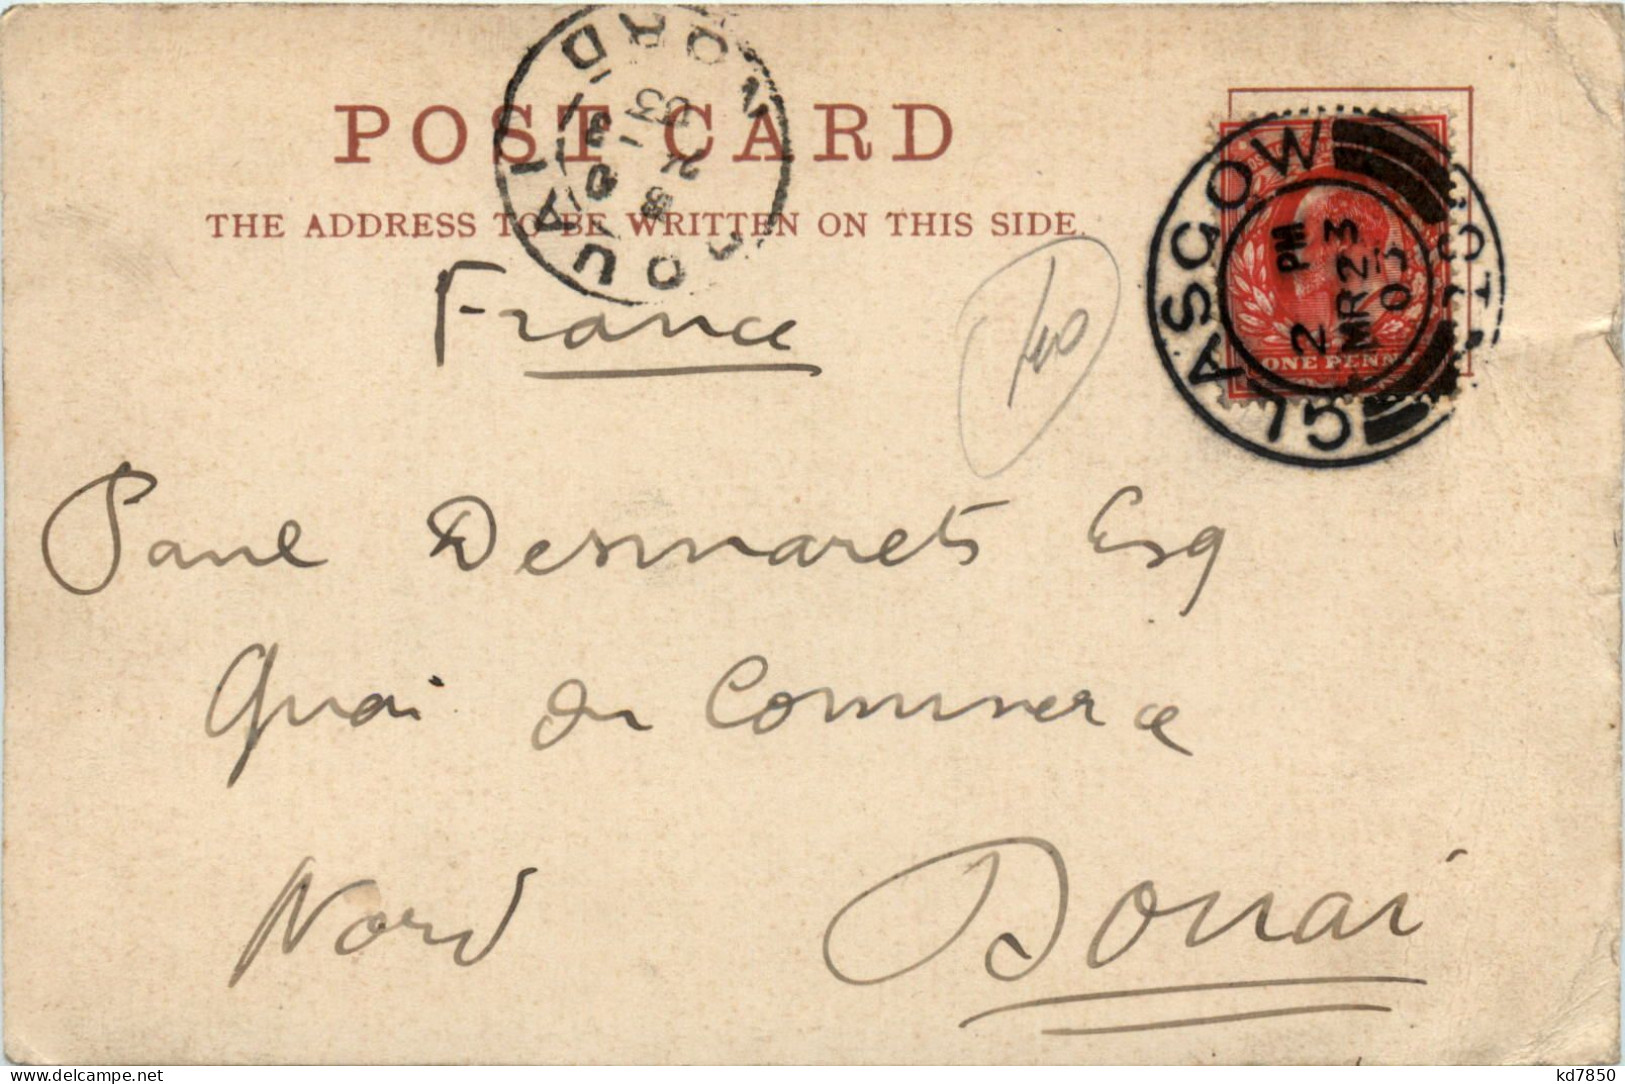 POST CARD
THE ADDRESS TO BE WRITTEN ON THIS SIDE.
DOUAI
NORD
03
GLASGOW
2 PM
MR 23
03
ONE PENNY
France
Paul Desmarets Esq
Quai du Commerce
Nord Douai
delcampe.net
kd7850